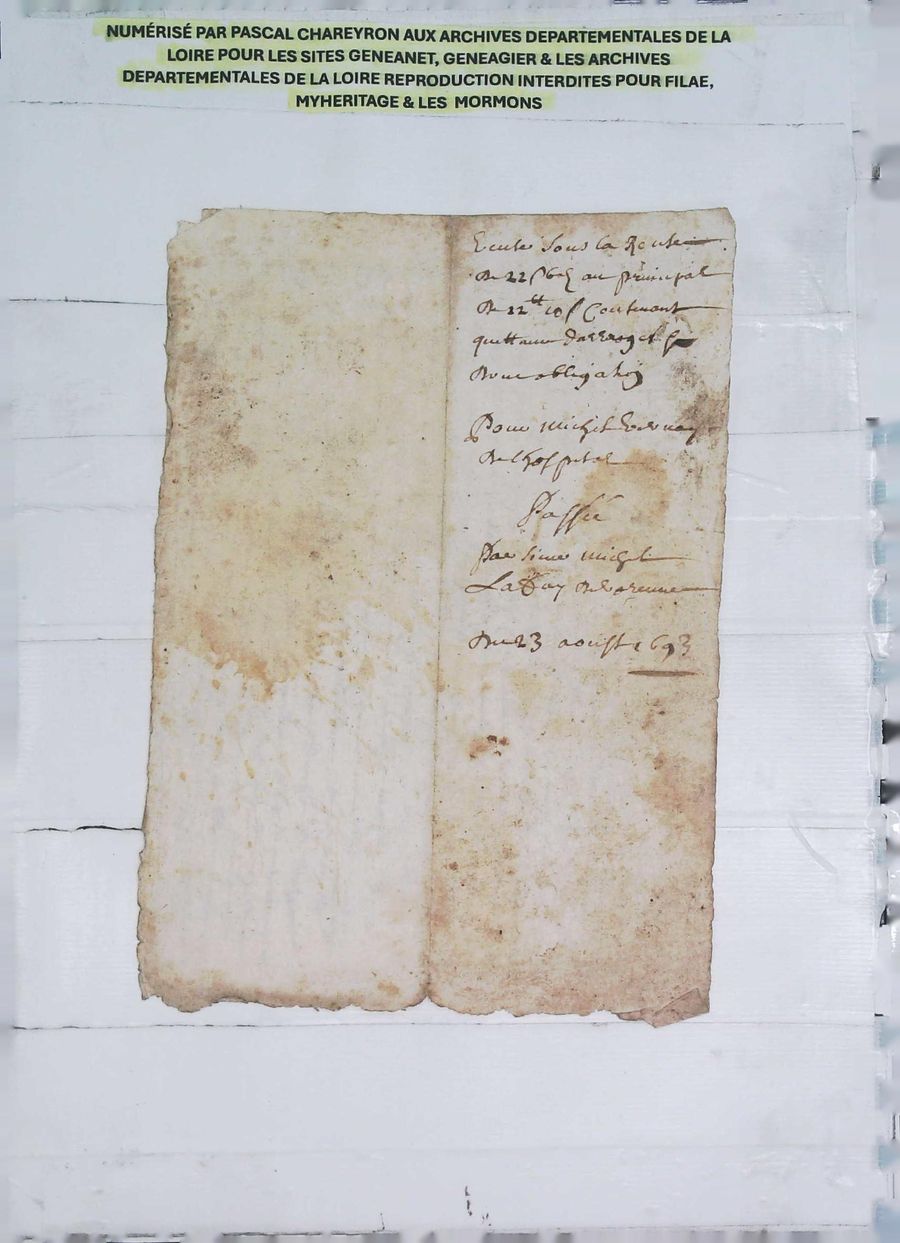 NUMÉRISÉ PAR PASCAL CHAREYRON AUX ARCHIVES DEPARTEMENTALES DE LA
LOIRE POUR LES SITES GENEANET, GENEAGIER & LES ARCHIVES
DEPARTEMENTALES DE LA LOIRE REPRODUCTION INTERDITES POUR FILAE,
MYHERITAGE & LES MORMONS
sous la Rente
De 22 au principal
De 22 tt 10 s Contenant
quittance
obligation
Pour michel
De lhospital
Passée
Par sieur michel
Du 23 aoust 1693